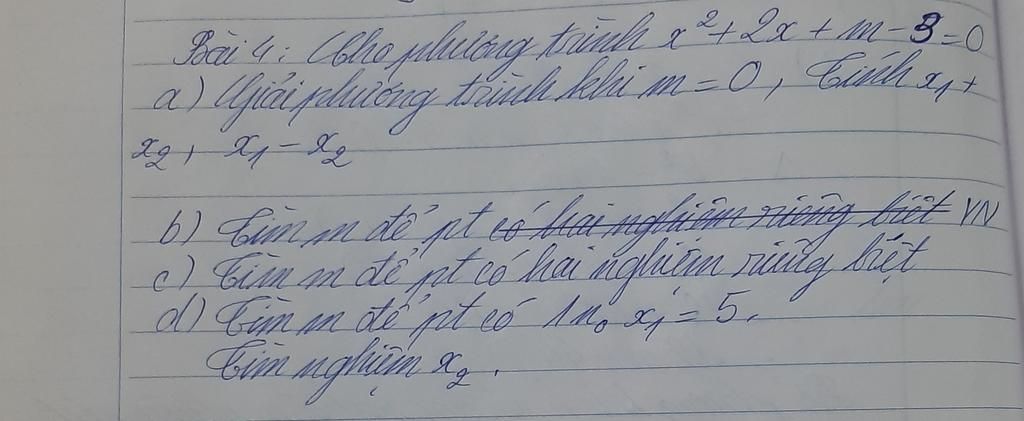 Bài 4: Cho phương trình x² + 2x + m - 3 = 0
a) Giải phương trình khi m = 0, Tính x₁ +
x₂, x₁ - x₂
b) Tìm m để pt có hai nghiệm riêng biệt VN
c) Tìm m để pt có hai nghiệm riêng biệt
d) Tìm m để pt có 1 n₀ x₁ = 5.
Tìm nghiệm x₂.